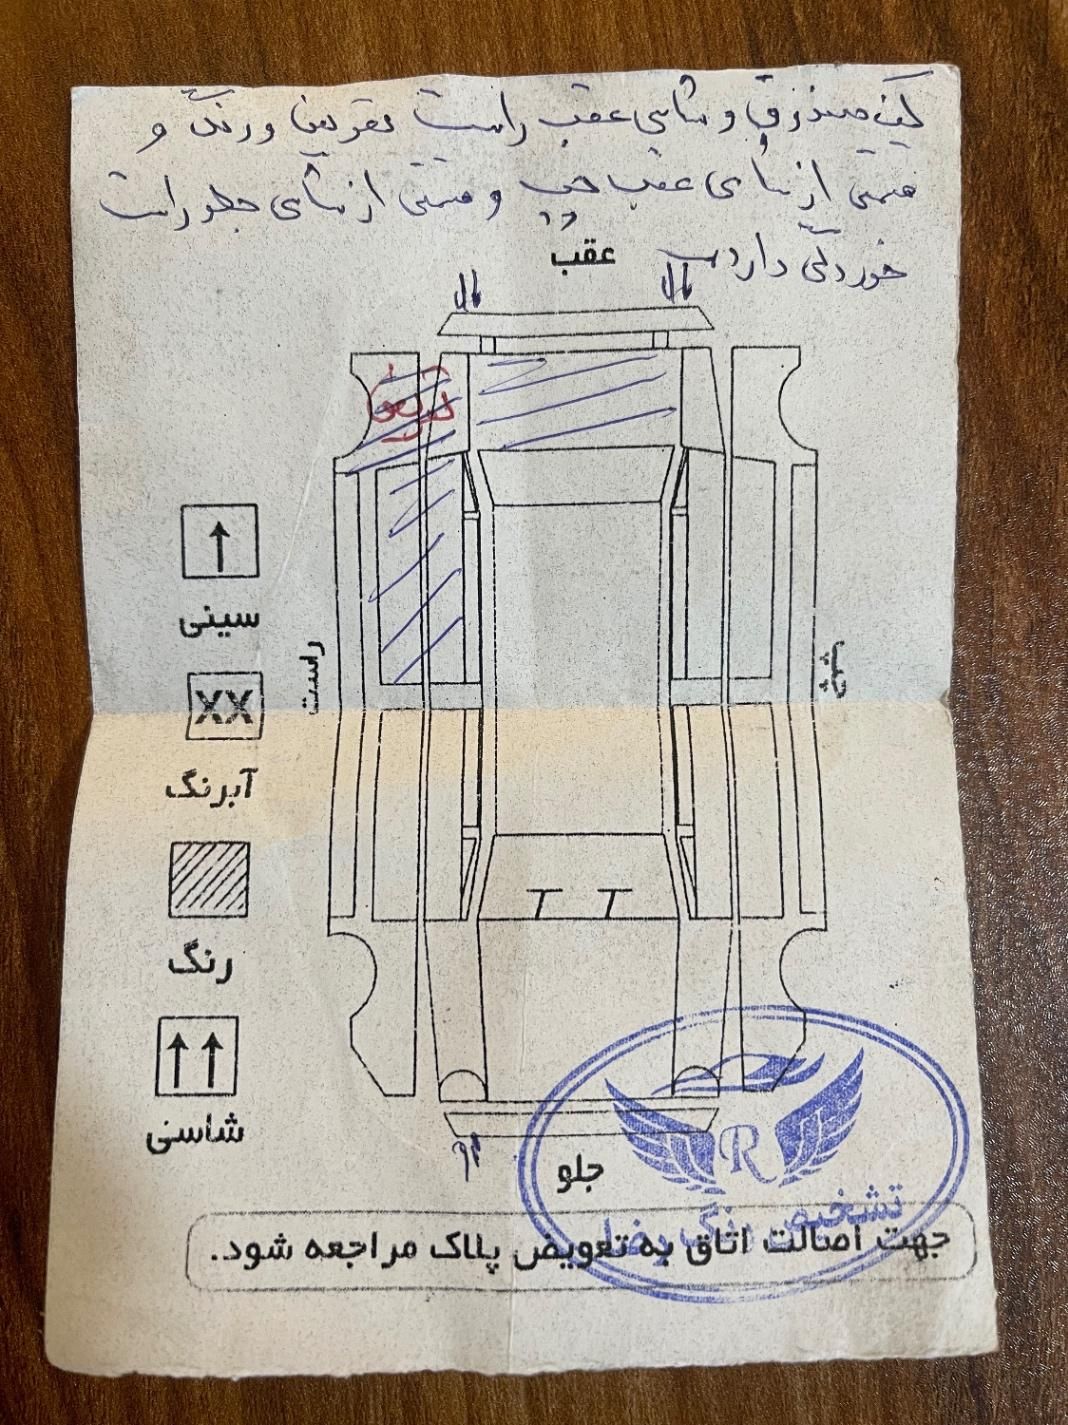 کف صندوق و شاسی عقب راست تعویض و رنگ و
قسمتی از شاسی عقب چپ و قسمتی از شاسی جلو راست
خوردگی دارد
عقب
تعویض
سینی
راست
چپ
XX
آبرنگ
رنگ
شاسی
جلو
R
تشخیص رنگ رضا
جهت اصالت اتاق به تعویض پلاک مراجعه شود.